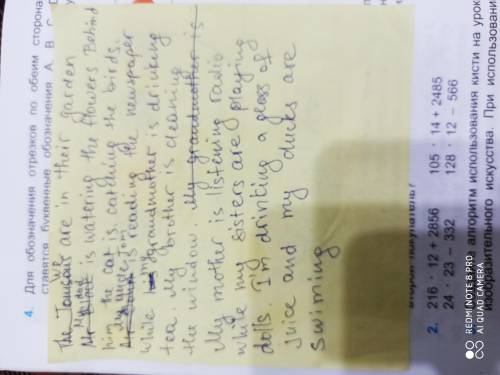 4. Для обозначения отрезков по обеим сторонам
ставятся буквенные обозначения А В С
The are in their garden
My dad
is watering the flowers Behind
him the cat is catching the birds.
My uncle Tom
is reading the newspaper
while grandmother is drinking
tea. My brother is cleaning
the window. My grandmother is
My mother is listening radio
while my sisters are playing
dolls. I'm drinking a glass of
juice and my ducks are
swiming
2. 216 · 12 + 2856 105 · 14 + 2485
24 · 23 − 332 128 · 12 − 566
алгоритм использования кисти на урок
изобразительного искусства. При использовани
REDMI NOTE 8 PRO
AI QUAD CAMERA